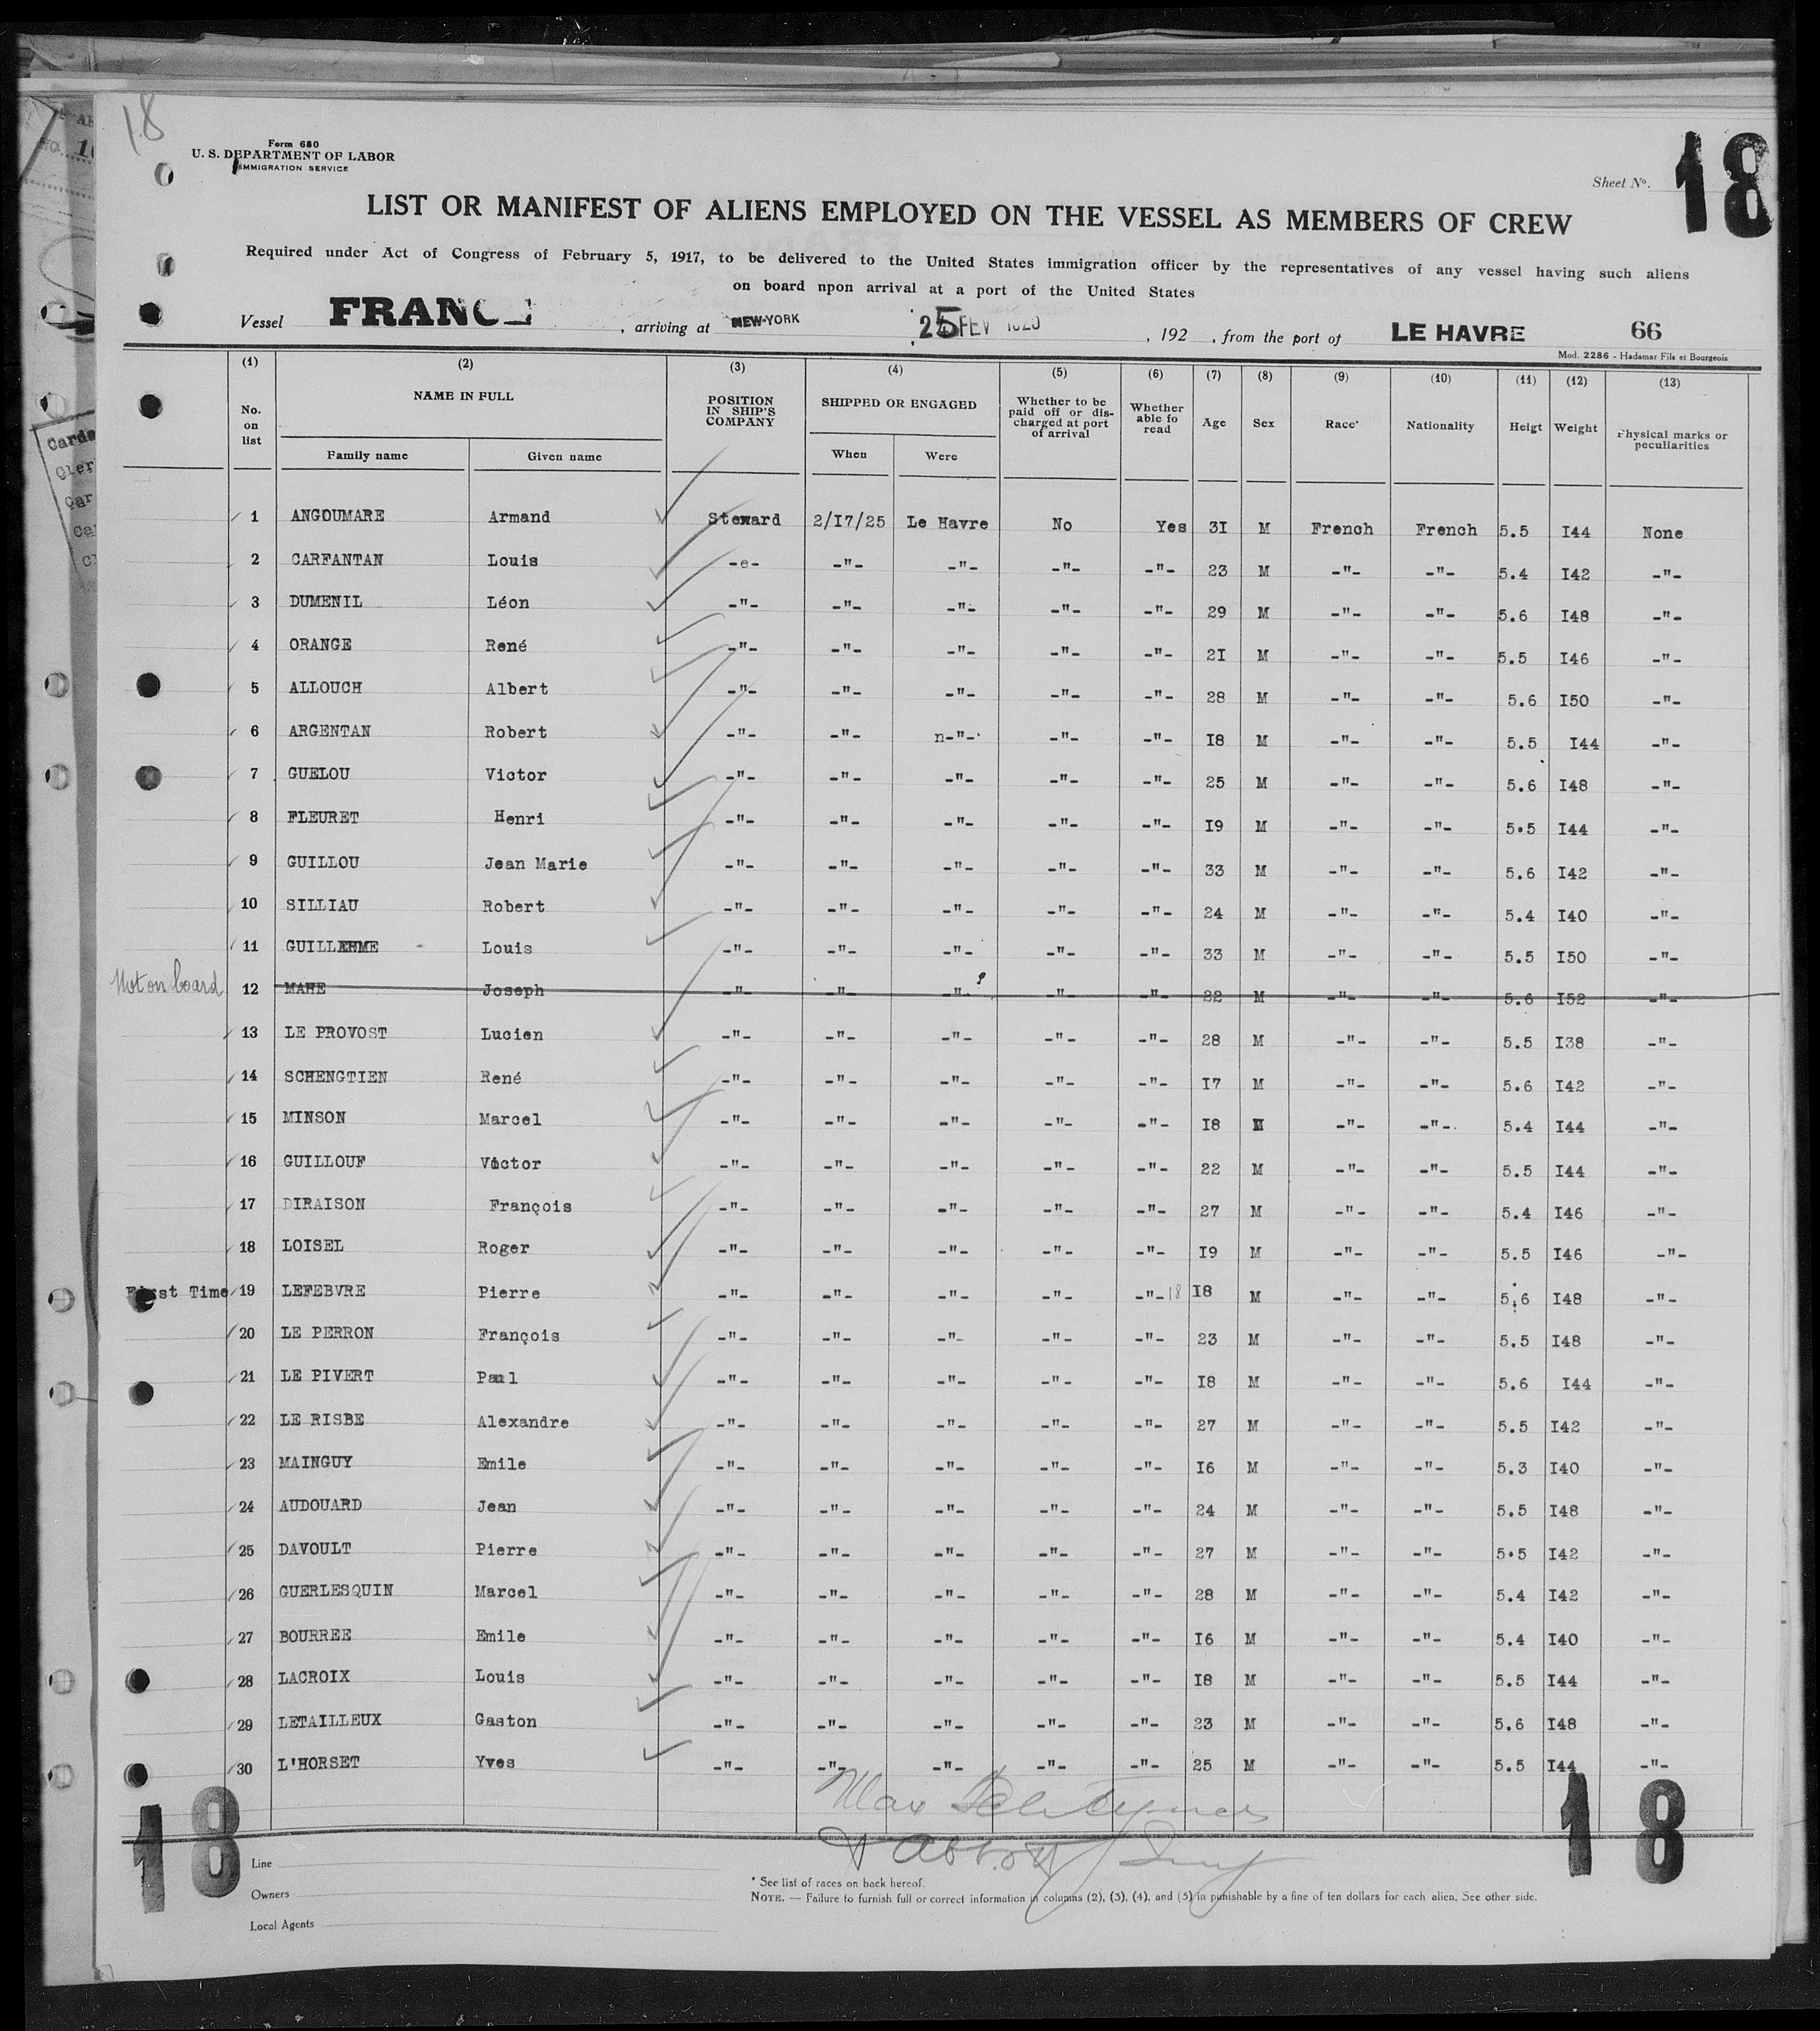 18
Form 680
U. S. DEPARTMENT OF LABOR
IMMIGRATION SERVICE
Sheet No. 18
LIST OR MANIFEST OF ALIENS EMPLOYED ON THE VESSEL AS MEMBERS OF CREW
Required under Act of Congress of February 5, 1917, to be delivered to the United States immigration officer by the representatives of any vessel having such aliens
on board npon arrival at a port of the United States
Vessel FRANCE , arriving at NEW-YORK 25 FEV 1925 , 192 , from the port of LE HAVRE 66
Mod. 2286 - Hadamar Fils et Bourgeois
(1) (2) (3) (4) (5) (6) (7) (8) (9) (10) (11) (12) (13)
No. on list NAME IN FULL POSITION IN SHIP'S COMPANY SHIPPED OR ENGAGED Whether to be paid off or discharged at port of arrival Whether able fo read Age Sex Race* Nationality Heigt Weight Physical marks or peculiarities
Family name Given name When Were
1 ANGOUMARE Armand Steward 2/I7/25 Le Havre No Yes 3I M French French 5.5 I44 None
2 CARFANTAN Louis -e- -"- -"- -"- -"- 23 M -"- -"- 5.4 I42 -"-
3 DUMENIL Léon -"- -"- -"- -"- -"- 29 M -"- -"- 5.6 I48 -"-
4 ORANGE René -"- -"- -"- -"- -"- 2I M -"- -"- 5.5 I46 -"-
5 ALLOUCH Albert -"- -"- -"- -"- -"- 28 M -"- -"- 5.6 I50 -"-
6 ARGENTAN Robert -"- -"- n-"- -"- -"- I8 M -"- -"- 5.5 I44 -"-
7 GUELOU Victor -"- -"- -"- -"- -"- 25 M -"- -"- 5.6 I48 -"-
8 FLEURET Henri -"- -"- -"- -"- -"- I9 M -"- -"- 5.5 I44 -"-
9 GUILLOU Jean Marie -"- -"- -"- -"- -"- 33 M -"- -"- 5.6 I42 -"-
10 SILLIAU Robert -"- -"- -"- -"- -"- 24 M -"- -"- 5.4 I40 -"-
11 GUILLERME Louis -"- -"- -"- -"- -"- 33 M -"- -"- 5.5 I50 -"-
Not on board 12 MAHE Joseph -"- -"- -"- -"- -"- 22 M -"- -"- 5.6 I52 -"-
13 LE PROVOST Lucien -"- -"- -"- -"- -"- 28 M -"- -"- 5.5 I38 -"-
14 SCHENGTIEN René -"- -"- -"- -"- -"- I7 M -"- -"- 5.6 I42 -"-
15 MINSON Marcel -"- -"- -"- -"- -"- I8 M -"- -"- 5.4 I44 -"-
16 GUILLOUF Victor -"- -"- -"- -"- -"- 22 M -"- -"- 5.5 I44 -"-
17 DIRAISON François -"- -"- -"- -"- -"- 27 M -"- -"- 5.4 I46 -"-
18 LOISEL Roger -"- -"- -"- -"- -"- I9 M -"- -"- 5.5 I46 -"-
First Time 19 LEFEBVRE Pierre -"- -"- -"- -"- -"- 18 I8 M -"- -"- 5.6 I48 -"-
20 LE PERRON François -"- -"- -"- -"- -"- 23 M -"- -"- 5.5 I48 -"-
21 LE PIVERT Paul -"- -"- -"- -"- -"- I8 M -"- -"- 5.6 I44 -"-
22 LE RISBE Alexandre -"- -"- -"- -"- -"- 27 M -"- -"- 5.5 I42 -"-
23 MAINGUY Emile -"- -"- -"- -"- -"- I6 M -"- -"- 5.3 I40 -"-
24 AUDOUARD Jean -"- -"- -"- -"- -"- 24 M -"- -"- 5.5 I48 -"-
25 DAVOULT Pierre -"- -"- -"- -"- -"- 27 M -"- -"- 5.5 I42 -"-
26 GUERLESQUIN Marcel -"- -"- -"- -"- -"- 28 M -"- -"- 5.4 I42 -"-
27 BOURREE Emile -"- -"- -"- -"- -"- I6 M -"- -"- 5.4 I40 -"-
28 LACROIX Louis -"- -"- -"- -"- -"- I8 M -"- -"- 5.5 I44 -"-
29 LETAILLEUX Gaston -"- -"- -"- -"- -"- 23 M -"- -"- 5.6 I48 -"-
30 L'HORSET Yves -"- -"- -"- -"- -"- 25 M -"- -"- 5.5 I44 -"-
Max
18 18
Line
Owners
Local Agents
* See list of races on back hereof.
NOTE. — Failure to furnish full or correct information in columns (2), (3), (4), and (5) in punishable by a fine of ten dollars for each alien, See other side.